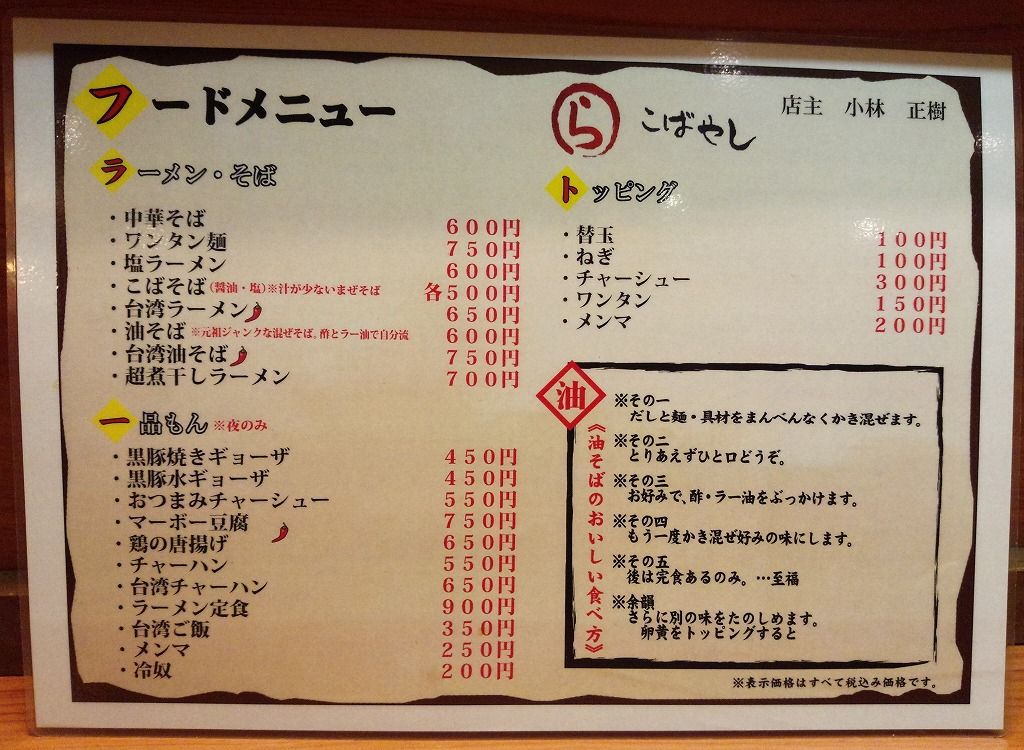 フードメニュー
ラーメン・そば
・中華そば 600円
・ワンタン麺 750円
・塩ラーメン 600円
・こばそば(醤油・塩)※汁が少ないまぜそば 各500円
・台湾ラーメン 650円
・油そば ※元祖ジャンクな混ぜそば。酢とラー油で自分流 600円
・台湾油そば 750円
・超煮干しラーメン 700円
一品もん ※夜のみ
・黒豚焼きギョーザ 450円
・黒豚水ギョーザ 450円
・おつまみチャーシュー 550円
・マーボー豆腐 750円
・鶏の唐揚げ 650円
・チャーハン 550円
・台湾チャーハン 650円
・ラーメン定食 900円
・台湾ご飯 350円
・メンマ 250円
・冷奴 200円
ら こばやし
店主 小林 正樹
トッピング
・替玉 100円
・ねぎ 100円
・チャーシュー 300円
・ワンタン 150円
・メンマ 200円
油
《油そばのおいしい食べ方》
※その一
だしと麺・具材をまんべんなくかき混ぜます。
※その二
とりあえずひと口どうぞ。
※その三
お好みで、酢・ラー油をぶっかけます。
※その四
もう一度かき混ぜ好みの味にします。
※その五
後は完食あるのみ。…至福
※余韻
さらに別の味をたのしめます。
卵黄をトッピングすると
※表示価格はすべて税込み価格です。